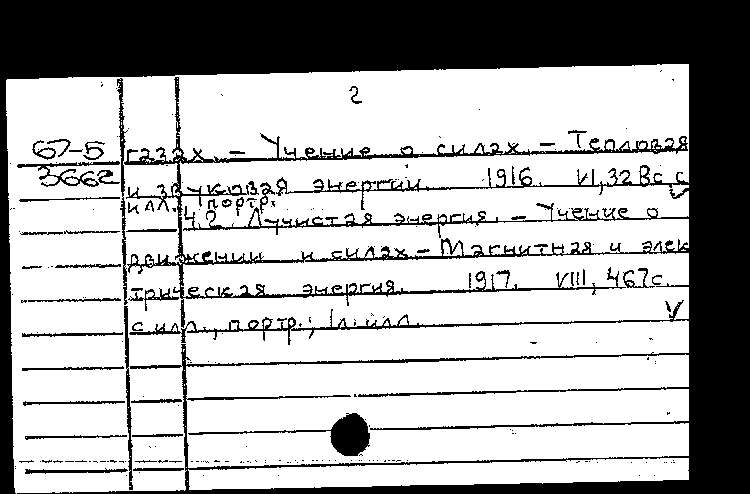 2
67-5 газах. – Учение о силах. – Тепловая
3662 и звуковая энергии. 1916. VI, 328с. с
илл. портр.
Ч.2. Лучистая энергия. – Учение о
движении и силах – Магнитная и элек
трическая энергия. 1917. VIII, 467с.
с илл., портр.; 1л. илл. V